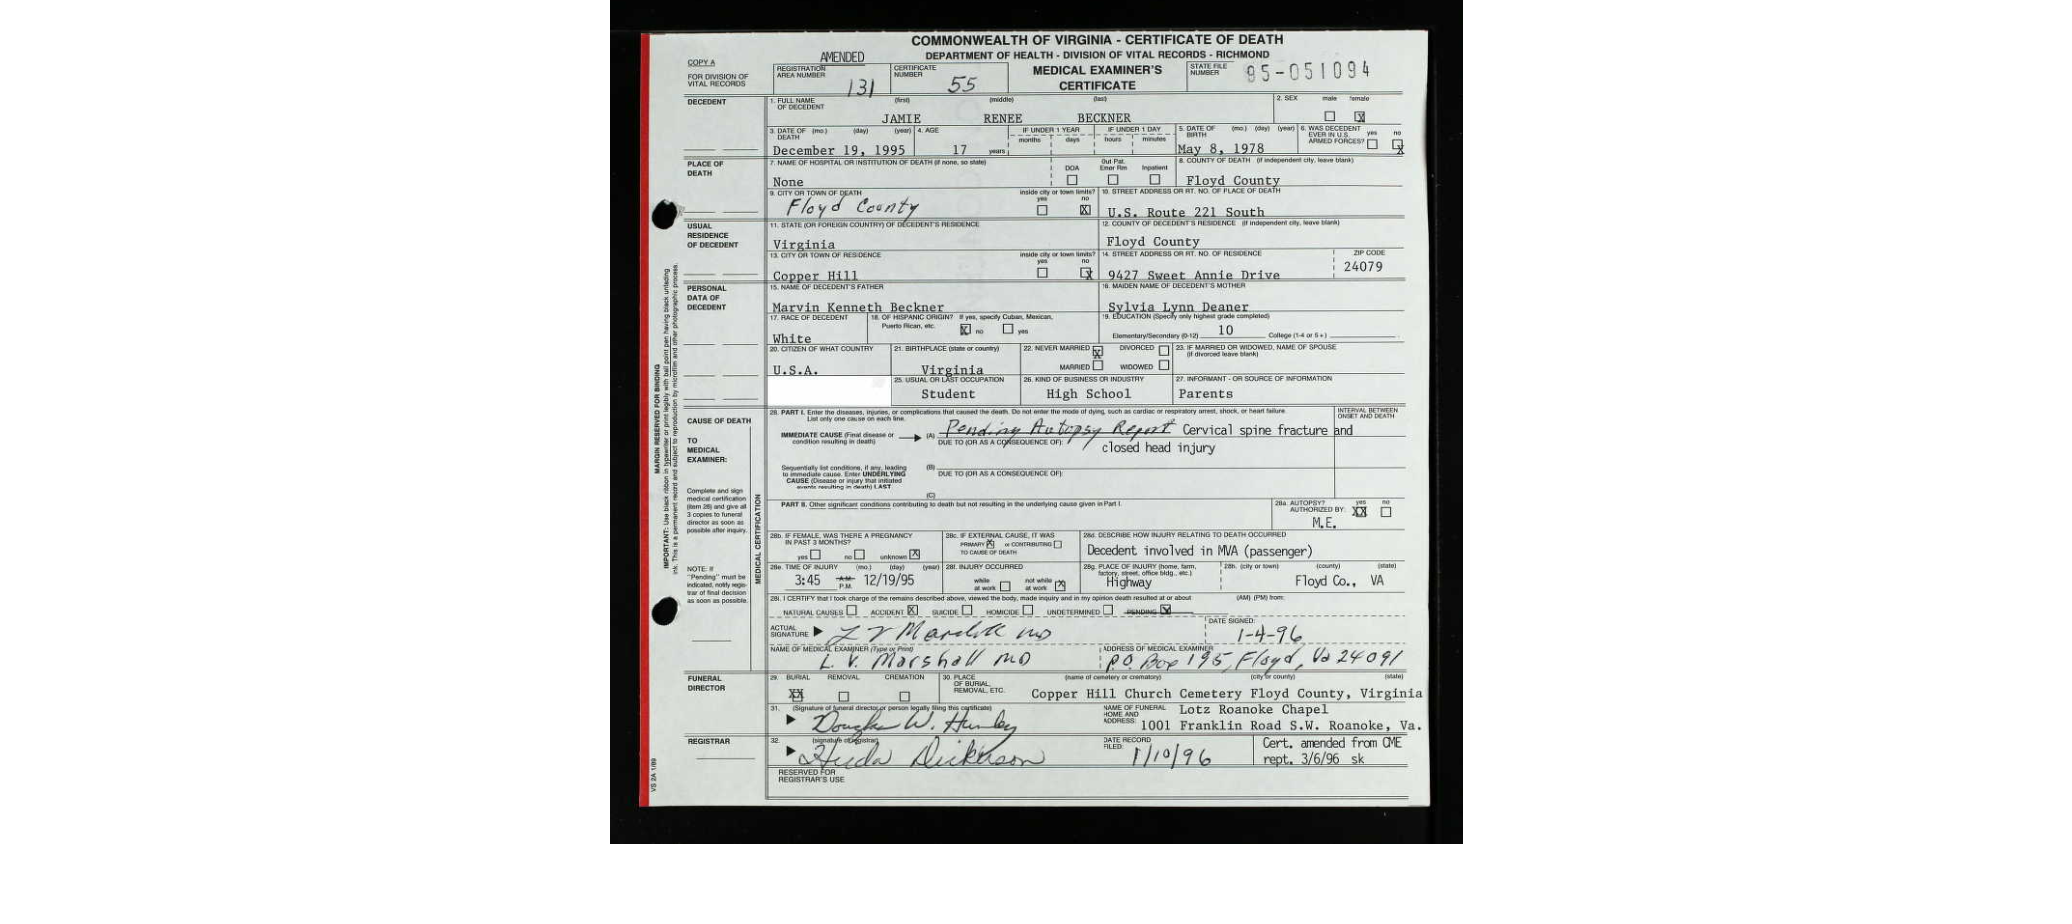 COMMONWEALTH OF VIRGINIA - CERTIFICATE OF DEATH
DEPARTMENT OF HEALTH - DIVISION OF VITAL RECORDS - RICHMOND
COPY A
FOR DIVISION OF VITAL RECORDS
AMENDED
REGISTRATION AREA NUMBER 131
CERTIFICATE NUMBER 55
MEDICAL EXAMINER'S CERTIFICATE
STATE FILE NUMBER 95-051094
DECEDENT
1. FULL NAME OF DECEDENT (first) (middle) (last)
JAMIE RENEE BECKNER
2. SEX male female X
3. DATE OF DEATH (mo.) (day) (year)
December 19, 1995
4. AGE 17 years
IF UNDER 1 YEAR months days
IF UNDER 1 DAY hours minutes
5. DATE OF BIRTH (mo.) (day) (year)
May 8, 1978
6. WAS DECEDENT EVER IN U.S. ARMED FORCES? yes no X
PLACE OF DEATH
7. NAME OF HOSPITAL OR INSTITUTION OF DEATH (if none, so state)
None
DOA Out Pat. Emer Rm. Inpatient
8. COUNTY OF DEATH (if independent city, leave blank)
Floyd County
9. CITY OR TOWN OF DEATH
Floyd County
inside city or town limits? yes no X
10. STREET ADDRESS OR RT. NO. OF PLACE OF DEATH
U.S. Route 221 South
USUAL RESIDENCE OF DECEDENT
11. STATE (OR FOREIGN COUNTRY) OF DECEDENT'S RESIDENCE
Virginia
12. COUNTY OF DECEDENT'S RESIDENCE (if independent city, leave blank)
Floyd County
13. CITY OR TOWN OF RESIDENCE
Copper Hill
inside city or town limits? yes no X
14. STREET ADDRESS OR RT. NO. OF RESIDENCE
9427 Sweet Annie Drive
ZIP CODE
24079
PERSONAL DATA OF DECEDENT
15. NAME OF DECEDENT'S FATHER
Marvin Kenneth Beckner
16. MAIDEN NAME OF DECEDENT'S MOTHER
Sylvia Lynn Deaner
17. RACE OF DECEDENT
White
18. OF HISPANIC ORIGIN? If yes, specify Cuban, Mexican, Puerto Rican, etc.
X no yes
19. EDUCATION (Specify only highest grade completed)
Elementary/Secondary (0-12) 10 College (1-4 or 5+)
20. CITIZEN OF WHAT COUNTRY
U.S.A.
21. BIRTHPLACE (state or country)
Virginia
22. NEVER MARRIED X DIVORCED
MARRIED WIDOWED
23. IF MARRIED OR WIDOWED, NAME OF SPOUSE (if divorced leave blank)
25. USUAL OR LAST OCCUPATION
Student
26. KIND OF BUSINESS OR INDUSTRY
High School
27. INFORMANT - OR SOURCE OF INFORMATION
Parents
CAUSE OF DEATH
TO MEDICAL EXAMINER:
Complete and sign medical certification (item 28) and give all 3 copies to funeral director as soon as possible after inquiry.
NOTE: If "Pending" must be indicated, notify registrar of final decision as soon as possible.
MEDICAL CERTIFICATION
28. PART I. Enter the diseases, injuries, or complications that caused the death. Do not enter the mode of dying, such as cardiac or respiratory arrest, shock, or heart failure.
List only one cause on each line.
INTERVAL BETWEEN ONSET AND DEATH
IMMEDIATE CAUSE (Final disease or condition resulting in death)
(A) Pending Autopsy Report Cervical spine fracture and
DUE TO (OR AS A CONSEQUENCE OF): closed head injury
Sequentially list conditions, if any, leading to immediate cause. Enter UNDERLYING CAUSE (Disease or injury that initiated events resulting in death) LAST
(B)
DUE TO (OR AS A CONSEQUENCE OF):
(C)
PART II. Other significant conditions contributing to death but not resulting in the underlying cause given in Part I.
28a. AUTOPSY? yes XX no
AUTHORIZED BY:
M.E.
28b. IF FEMALE, WAS THERE A PREGNANCY IN PAST 3 MONTHS?
yes no unknown X
28c. IF EXTERNAL CAUSE, IT WAS
PRIMARY X or CONTRIBUTING
TO CAUSE OF DEATH
28d. DESCRIBE HOW INJURY RELATING TO DEATH OCCURRED
Decedent involved in MVA (passenger)
28e. TIME OF INJURY (mo.) (day) (year)
3:45 A.M. P.M. 12/19/95
28f. INJURY OCCURRED
while at work not while at work X
28g. PLACE OF INJURY (home, farm, factory, street, office bldg., etc.)
Highway
28h. (city or town) (county) (state)
Floyd Co., VA
28i. I CERTIFY that I took charge of the remains described above, viewed the body, made inquiry and in my opinion death resulted at or about (AM) (PM) from:
NATURAL CAUSES ACCIDENT X SUICIDE HOMICIDE UNDETERMINED PENDING X
ACTUAL SIGNATURE L V Marshall MD
DATE SIGNED:
1-4-96
NAME OF MEDICAL EXAMINER (Type or Print)
L. V. Marshall MD
ADDRESS OF MEDICAL EXAMINER
P.O. Box 195, Floyd, Va 24091
FUNERAL DIRECTOR
29. BURIAL REMOVAL CREMATION
XX
30. PLACE OF BURIAL, REMOVAL, ETC. (name of cemetery or crematory) (city or county) (state)
Copper Hill Church Cemetery Floyd County, Virginia
31. (Signature of funeral director or person legally filing this certificate)
NAME OF FUNERAL HOME AND ADDRESS:
Lotz Roanoke Chapel
1001 Franklin Road S.W. Roanoke, Va.
REGISTRAR
32. (signature of registrar)
Dickerson
DATE RECORD FILED:
1/10/96
Cert. amended from CME
rept. 3/6/96 sk
RESERVED FOR REGISTRAR'S USE
VS 2A 1/89
MARGIN RESERVED FOR BINDING
IMPORTANT: Use black ribbon in typewriter or print legibly with ball point pen having black unfading ink. This is a permanent record and subject to reproduction by microfilm and other photographic process.